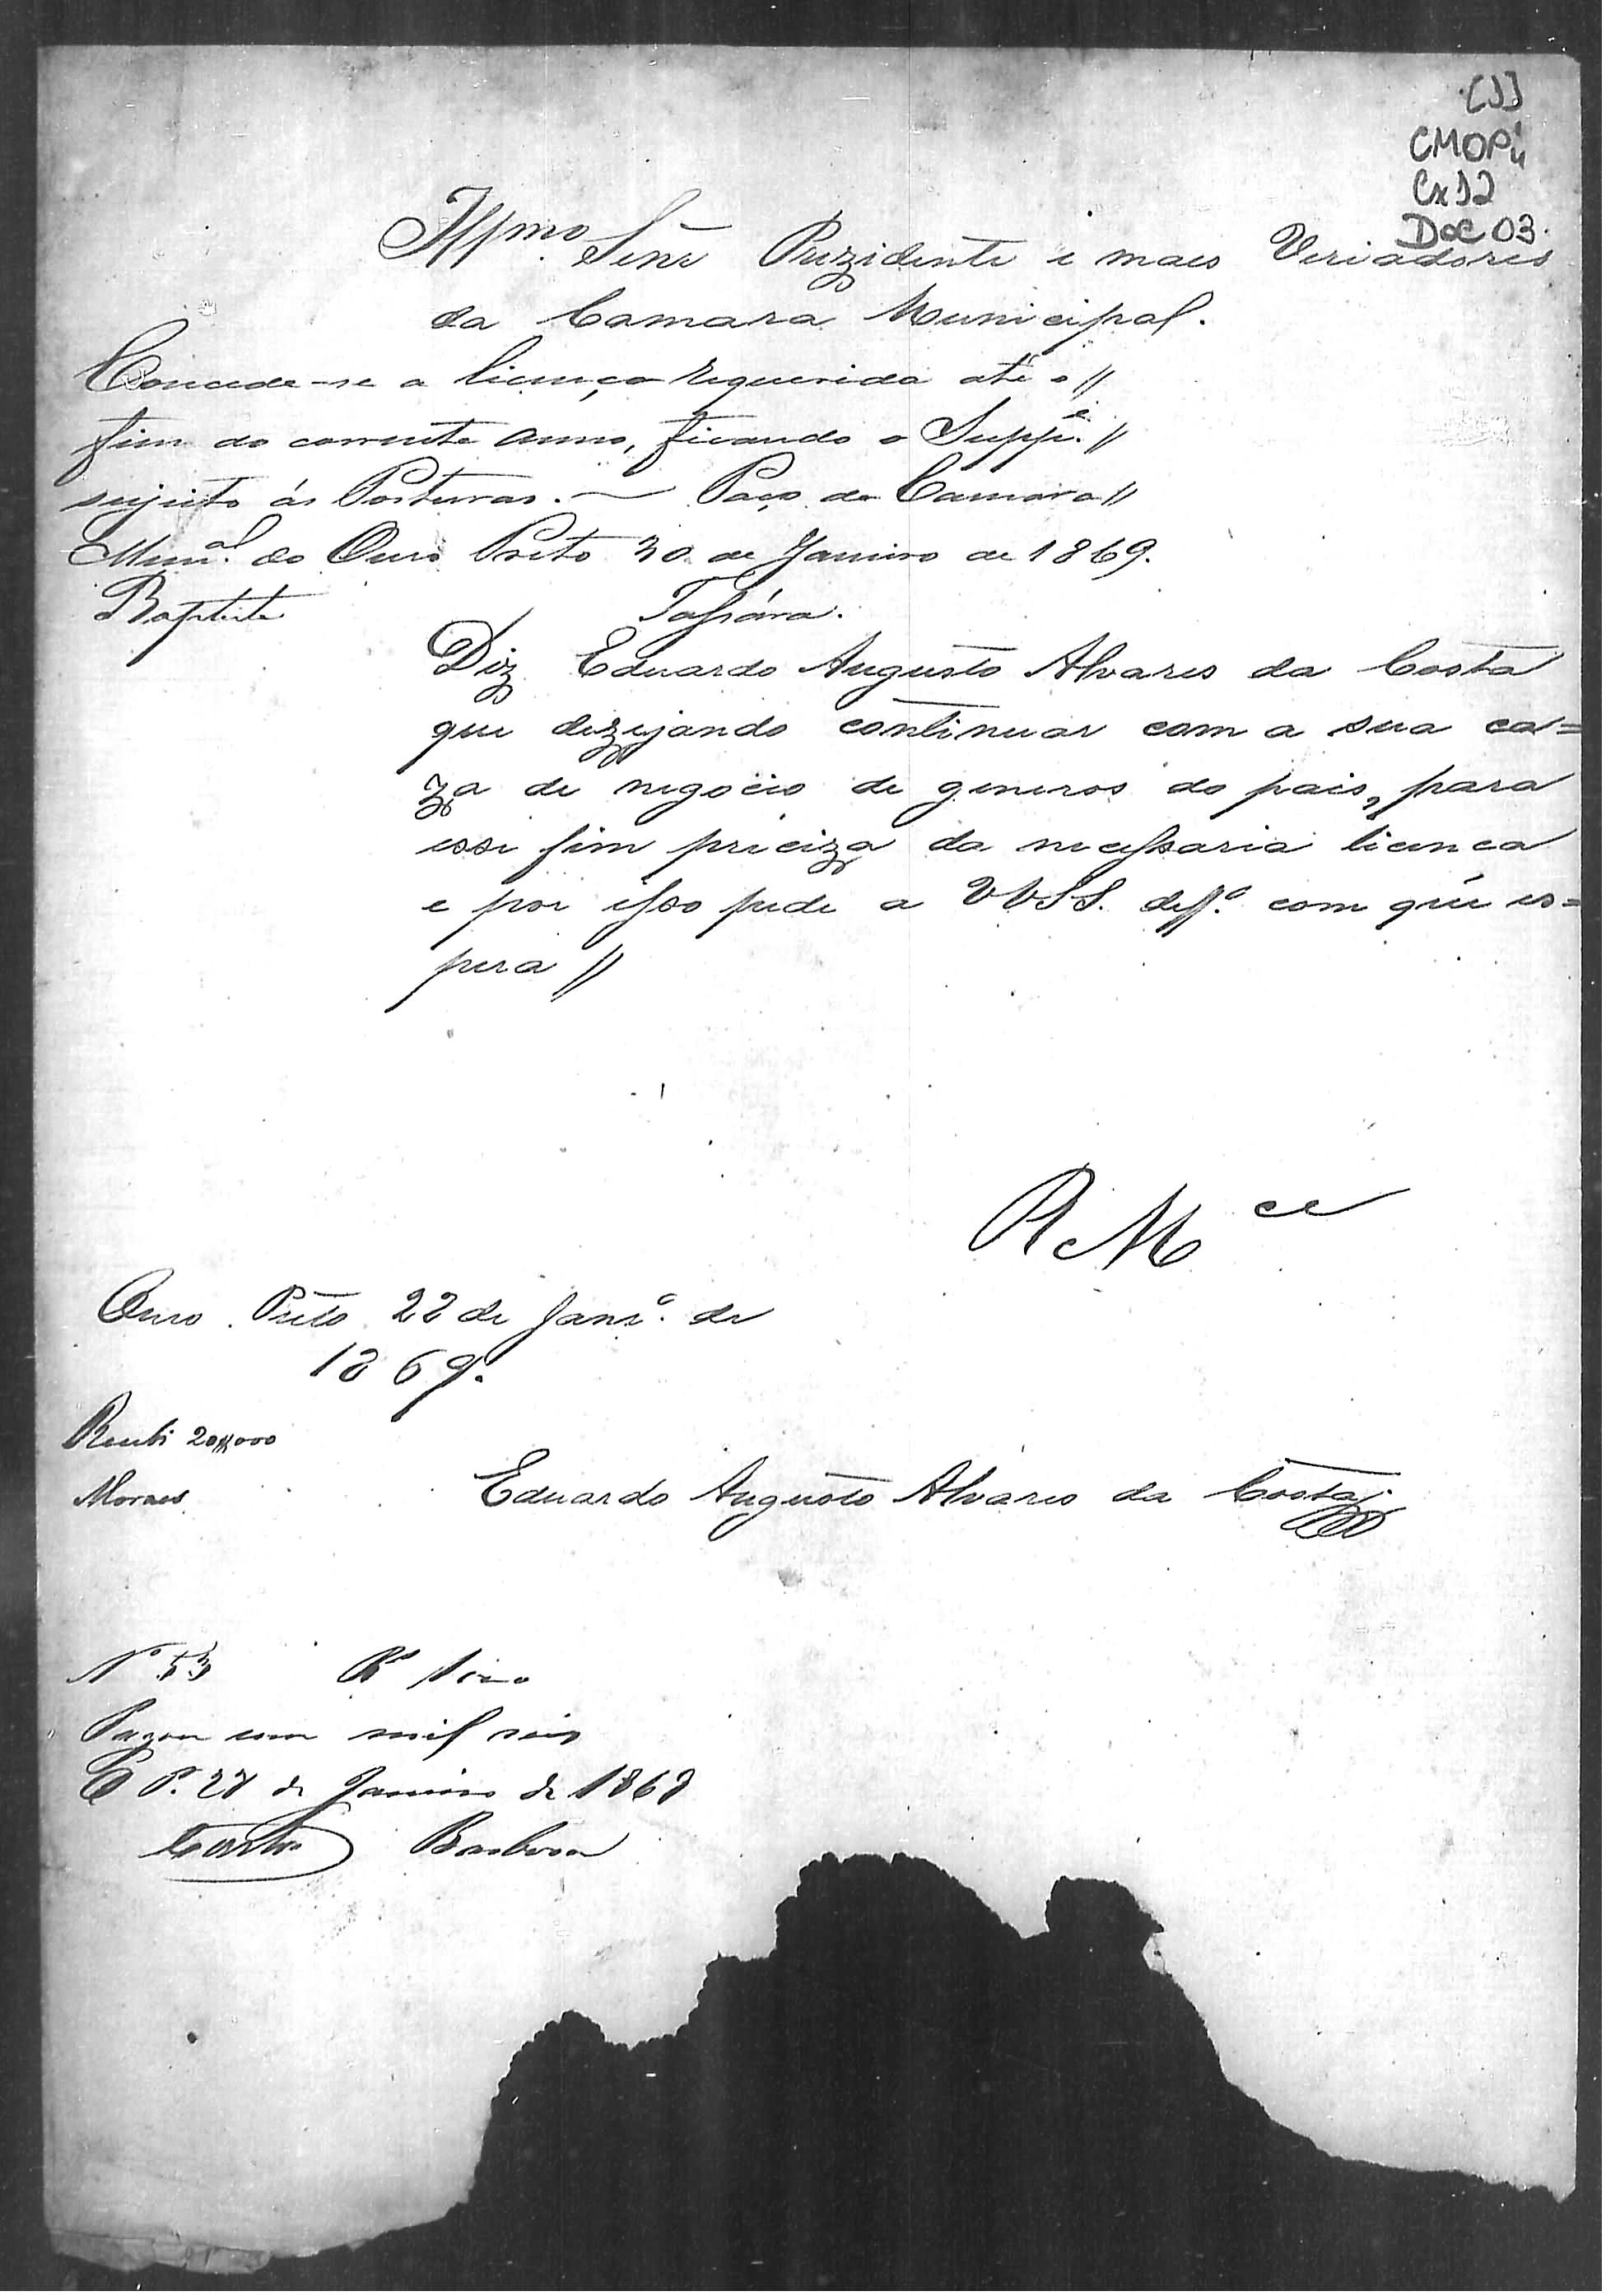 [1]
CMOP
Cx 12
Doc 03.
Illmo. Senr Prezidente e mais Veriadores
da Camara Municipal.
Concede-se a licença requerida até o //
fim do corrente anno, ficando o Supp.e //
sujeito ás Posturas. — Paço da Camara //
Mun.al do Ouro Preto 30 de Janeiro de 1869.
Baptista
Diz Eduardo Augusto Alvares da Costa
que dezejando continuar com a sua ca=
za de negocio de generos do pais, para
esse fim preciza da necessaria licenca
e por isso pede a VVSS. deff.o com que es=
pera //
R Mce
Ouro Preto 22 de Janr.o de
1869.
Recebi 20$000
Moraes
Eduardo Augusto Alvares da Costa.
No 53 Rs 1000
Pagou um mil reis
O P. 27 de Janeiro de 1869
Barbosa